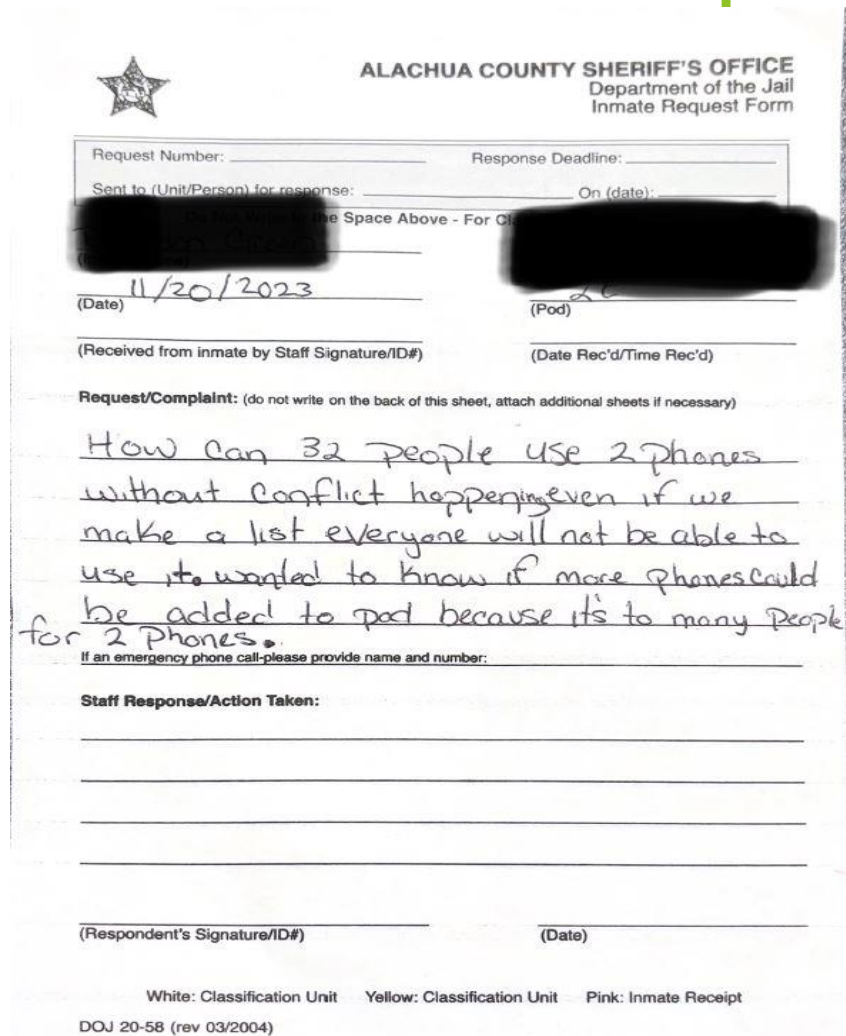 ALACHUA COUNTY SHERIFF'S OFFICE
Department of the Jail
Inmate Request Form
Request Number: Response Deadline:
Sent to (Unit/Person) for response: On (date):
the Space Above - For
11/20/2023
(Date) (Pod)
(Received from inmate by Staff Signature/ID#) (Date Rec'd/Time Rec'd)
Request/Complaint: (do not write on the back of this sheet, attach additional sheets if necessary)
How can 32 people use 2 phones
without conflict happening even if we
make a list everyone will not be able to
use it. wanted to know if more phones could
be added to pod because it's to many people
for 2 phones.
If an emergency phone call-please provide name and number:
Staff Response/Action Taken:
(Respondent's Signature/ID#) (Date)
White: Classification Unit Yellow: Classification Unit Pink: Inmate Receipt
DOJ 20-58 (rev 03/2004)